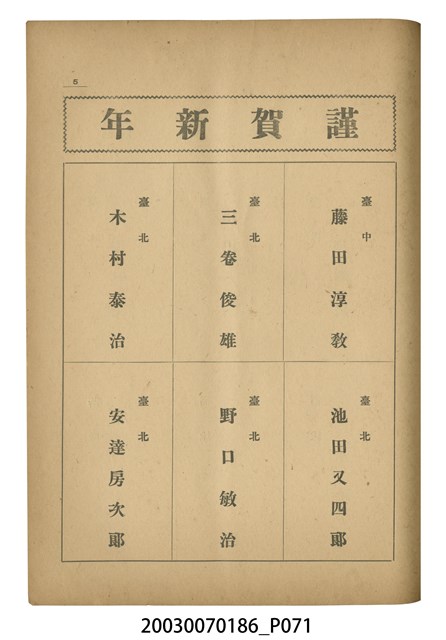 5
謹賀新年
臺中
藤田淳教
臺北
三卷俊雄
臺北
木村泰治
臺北
池田又四郞
臺北
野口敏治
臺北
安達房次郞
20030070186_P071